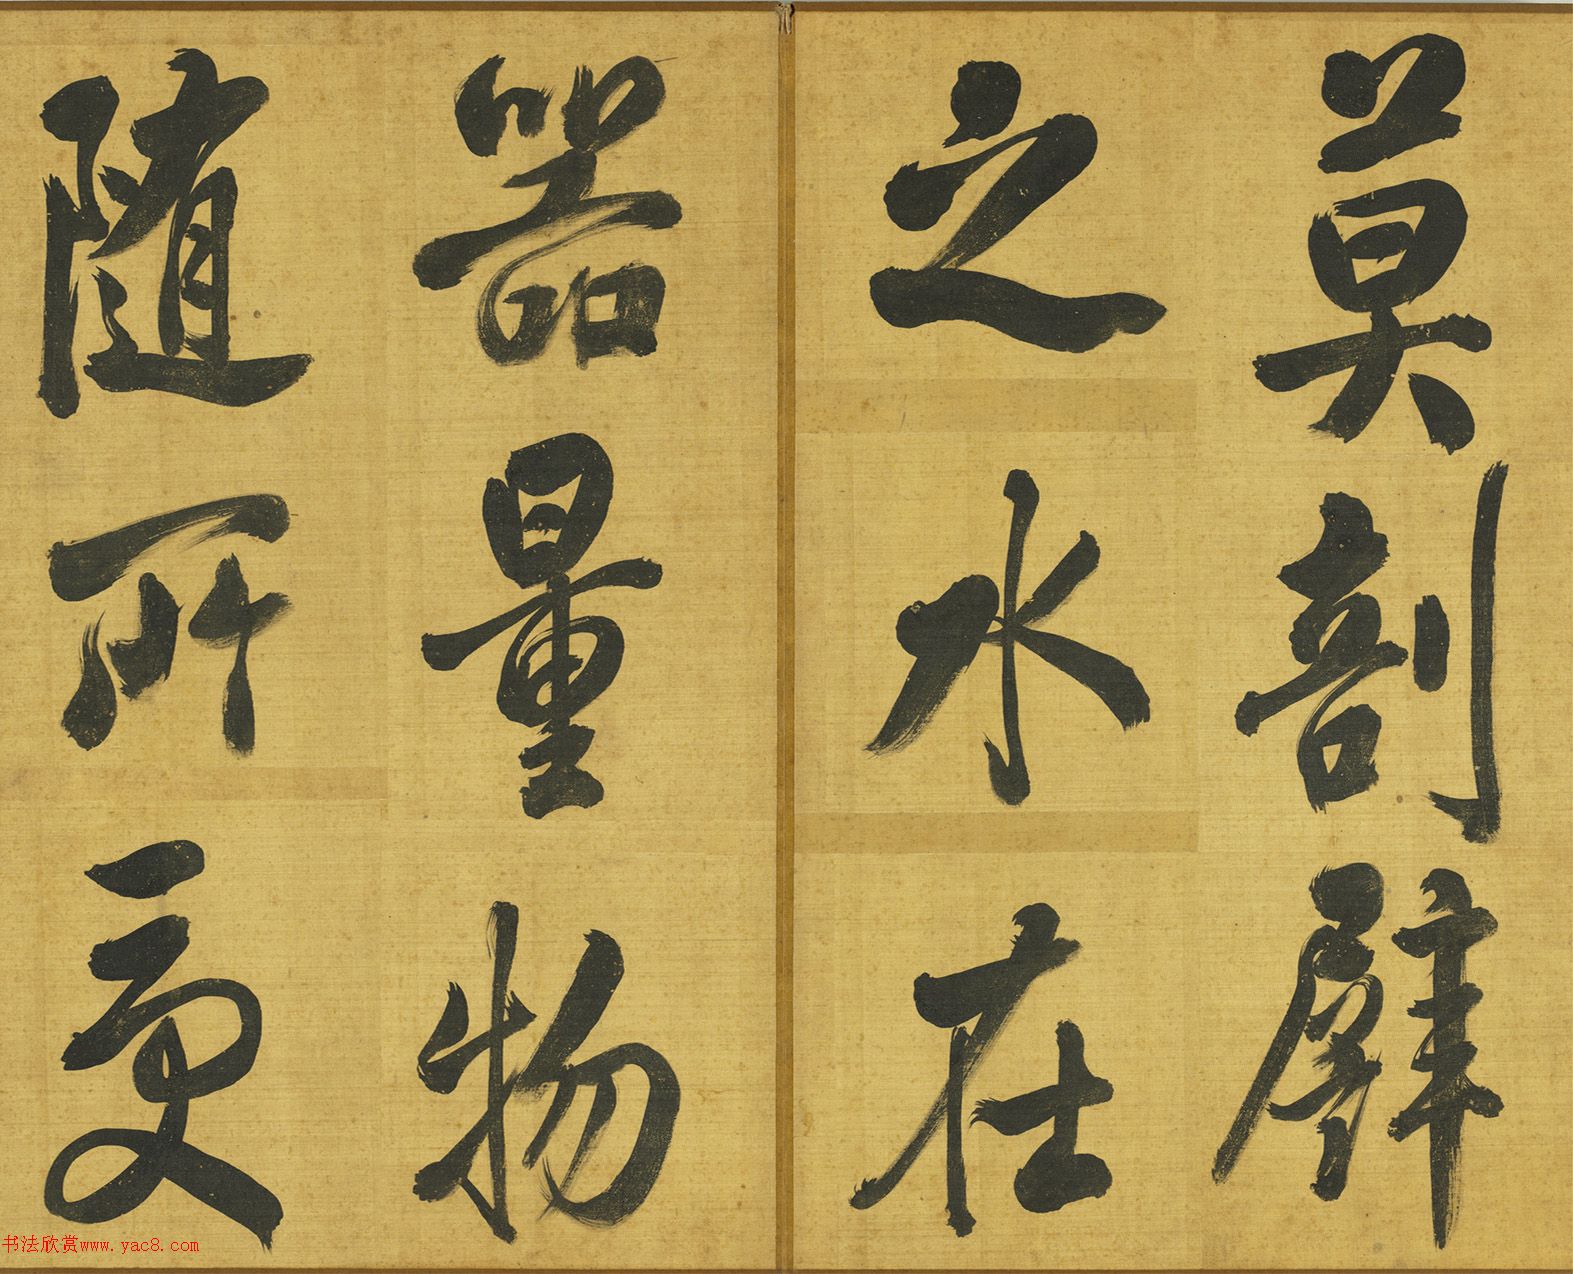 莫剖劈
之水在
器量物
随所更
书法欣赏www.yac8.com